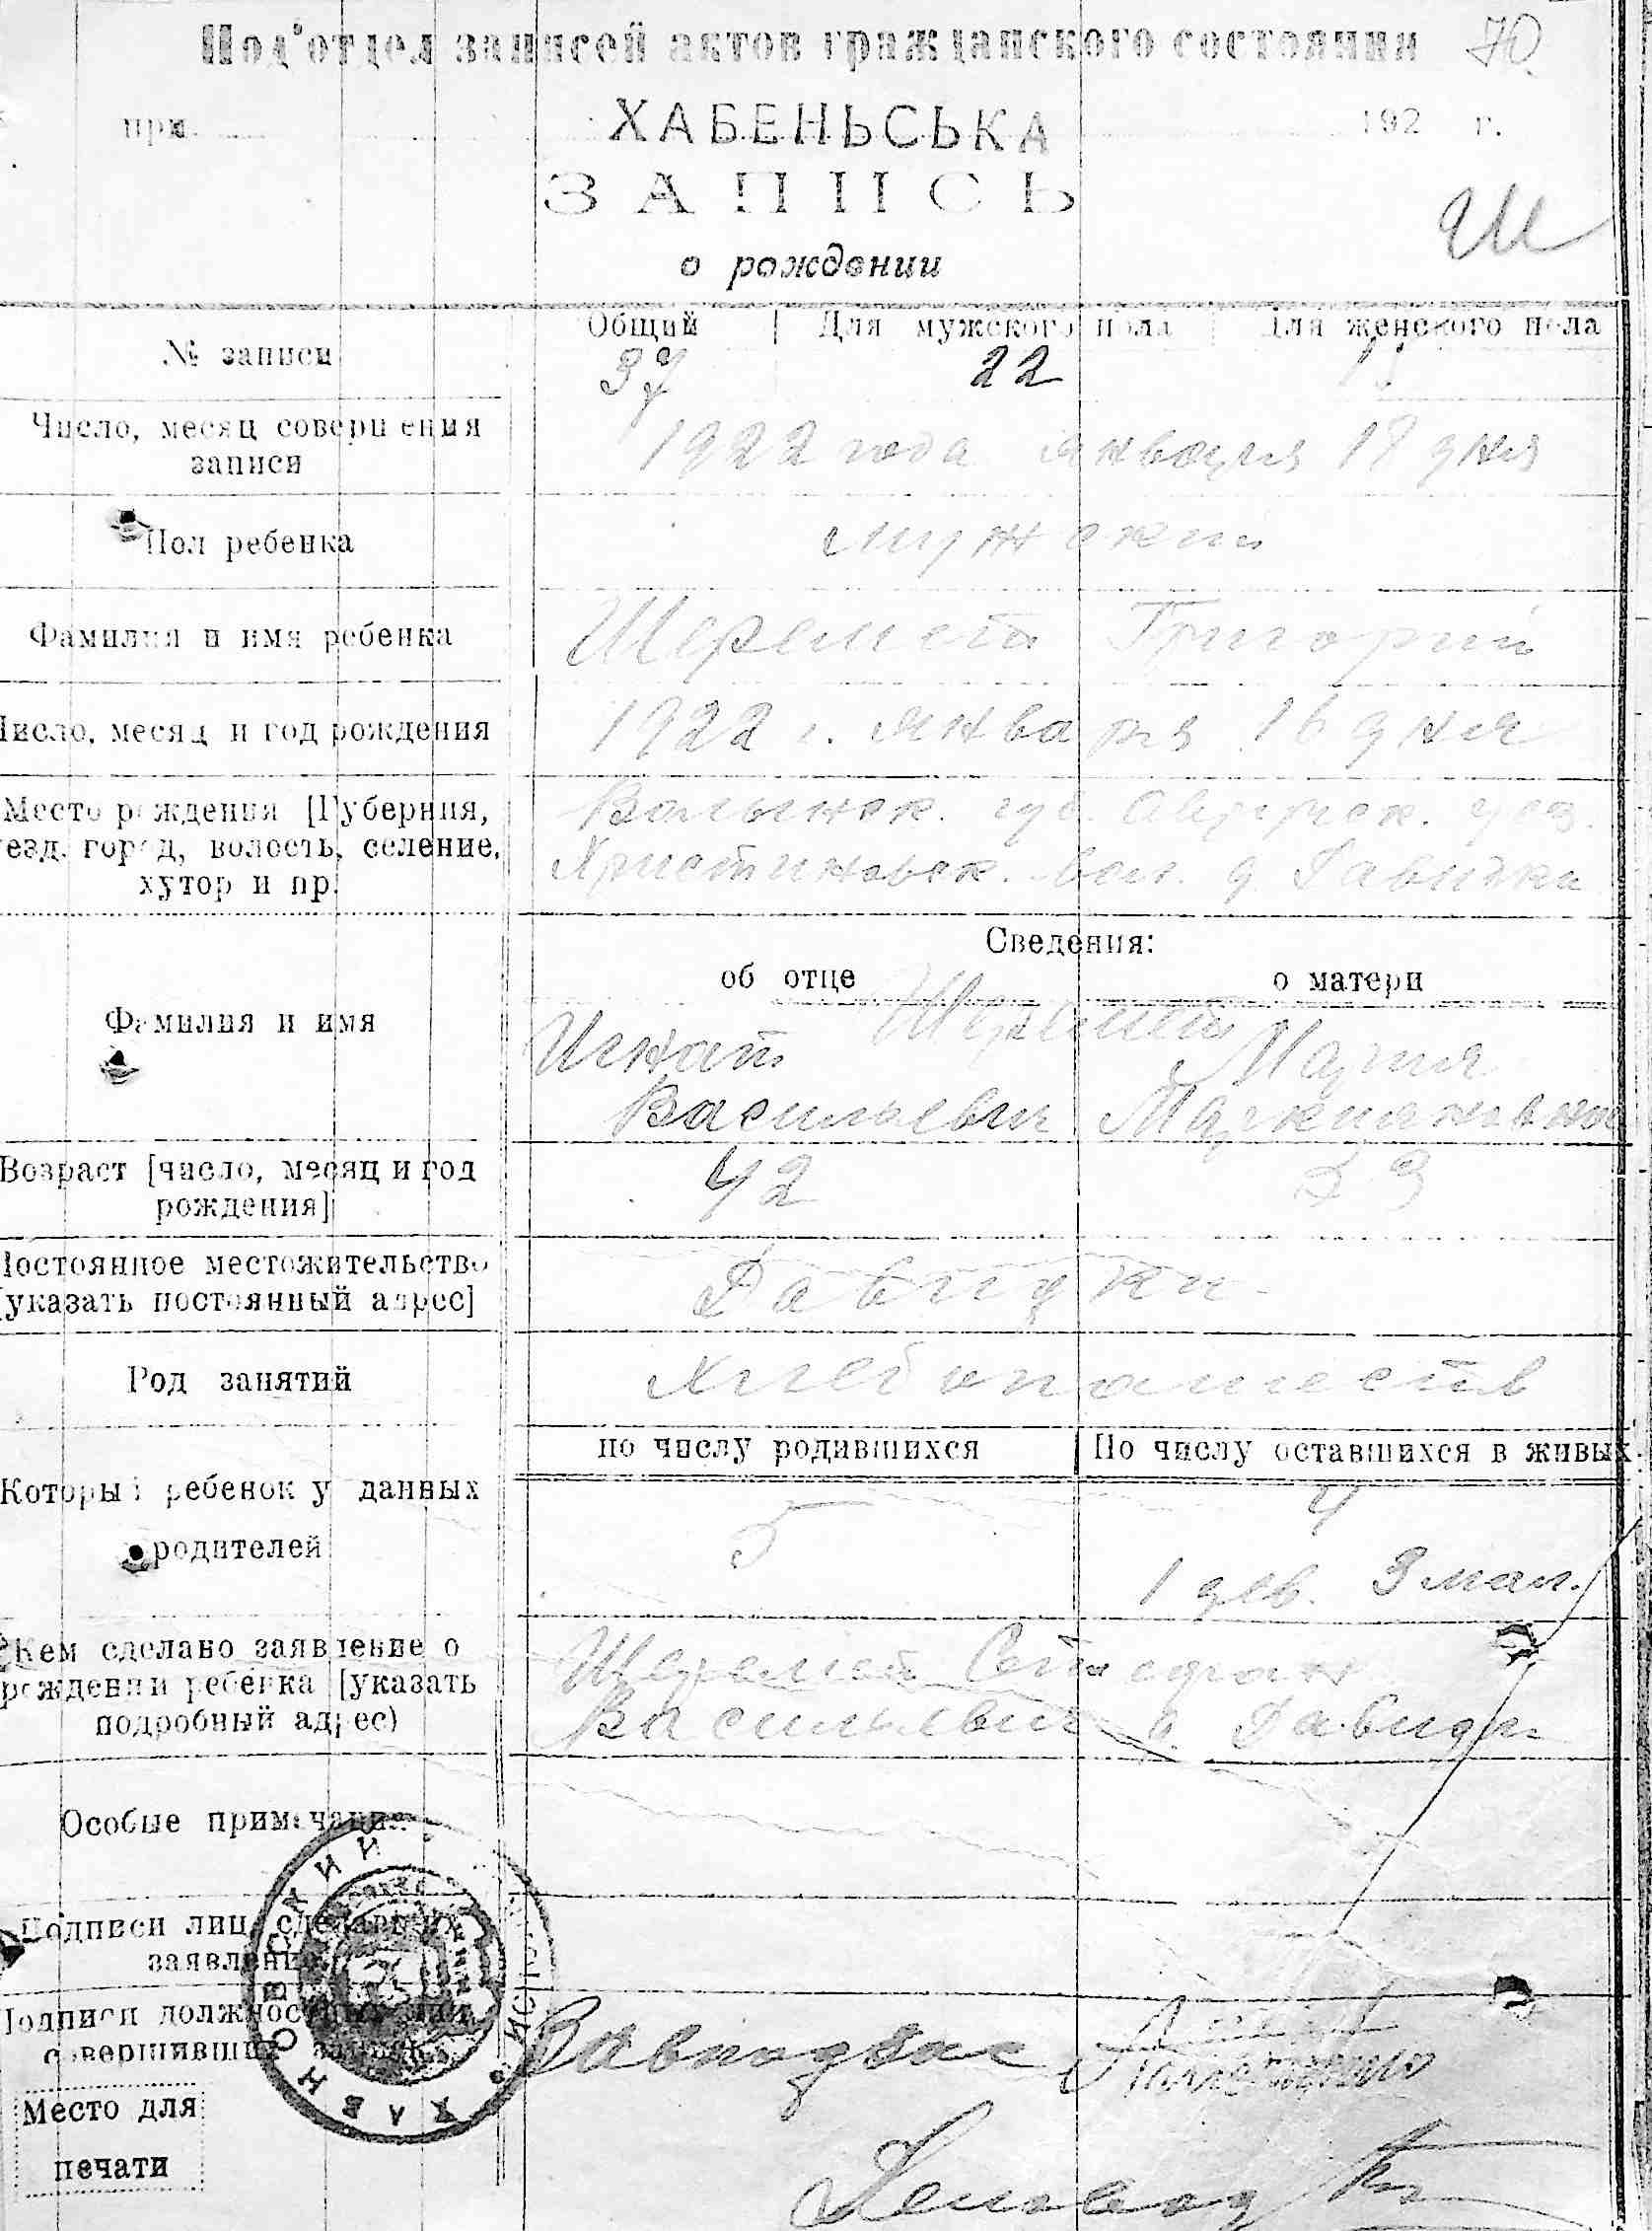 Под'отдел записей актов гражданского состояния 70
при ХАБЕНЬСЬКА 192 г.
ЗАПИСЬ
о рождении
Общий Для мужского пола Для женского пола
№ записи 37 22
Число, месяц совершения
записи
1922 года января 18 дня
Пол ребенка
мужский
Фамилия и имя ребенка
Шеремет Григорий
Число, месяц и год рождения
1922 г. января 16 дня
Место рождения [Губерния,
уезд, город, волость, селение,
хутор и пр.
Волынск. губ. Овручск. уез.
Христиновск. вол. д. Давидки
Сведения:
об отце о матери
Фамилия и имя
Шеремет
Игнат Мария
Васильевич Маркияновна
Возраст [число, месяц и год
рождения]
42 33
Постоянное местожительство
[указать постоянный адрес]
Давидки
Род занятий
Хлебопашеств
по числу родившихся По числу оставшихся в живых
Который ребенок у данных
родителей
5 4
1 дев. 3 мал.
Кем сделано заявление о
рождении ребенка [указать
подробный адрес)
Шеремет
Васильевич с. Давидки
Особые примечания
Подписи лиц, сделавших
заявление
Подписи должностных лиц,
совершивших запись
Завподзаг
Место для
печати
ХАБНОВСКИЙ